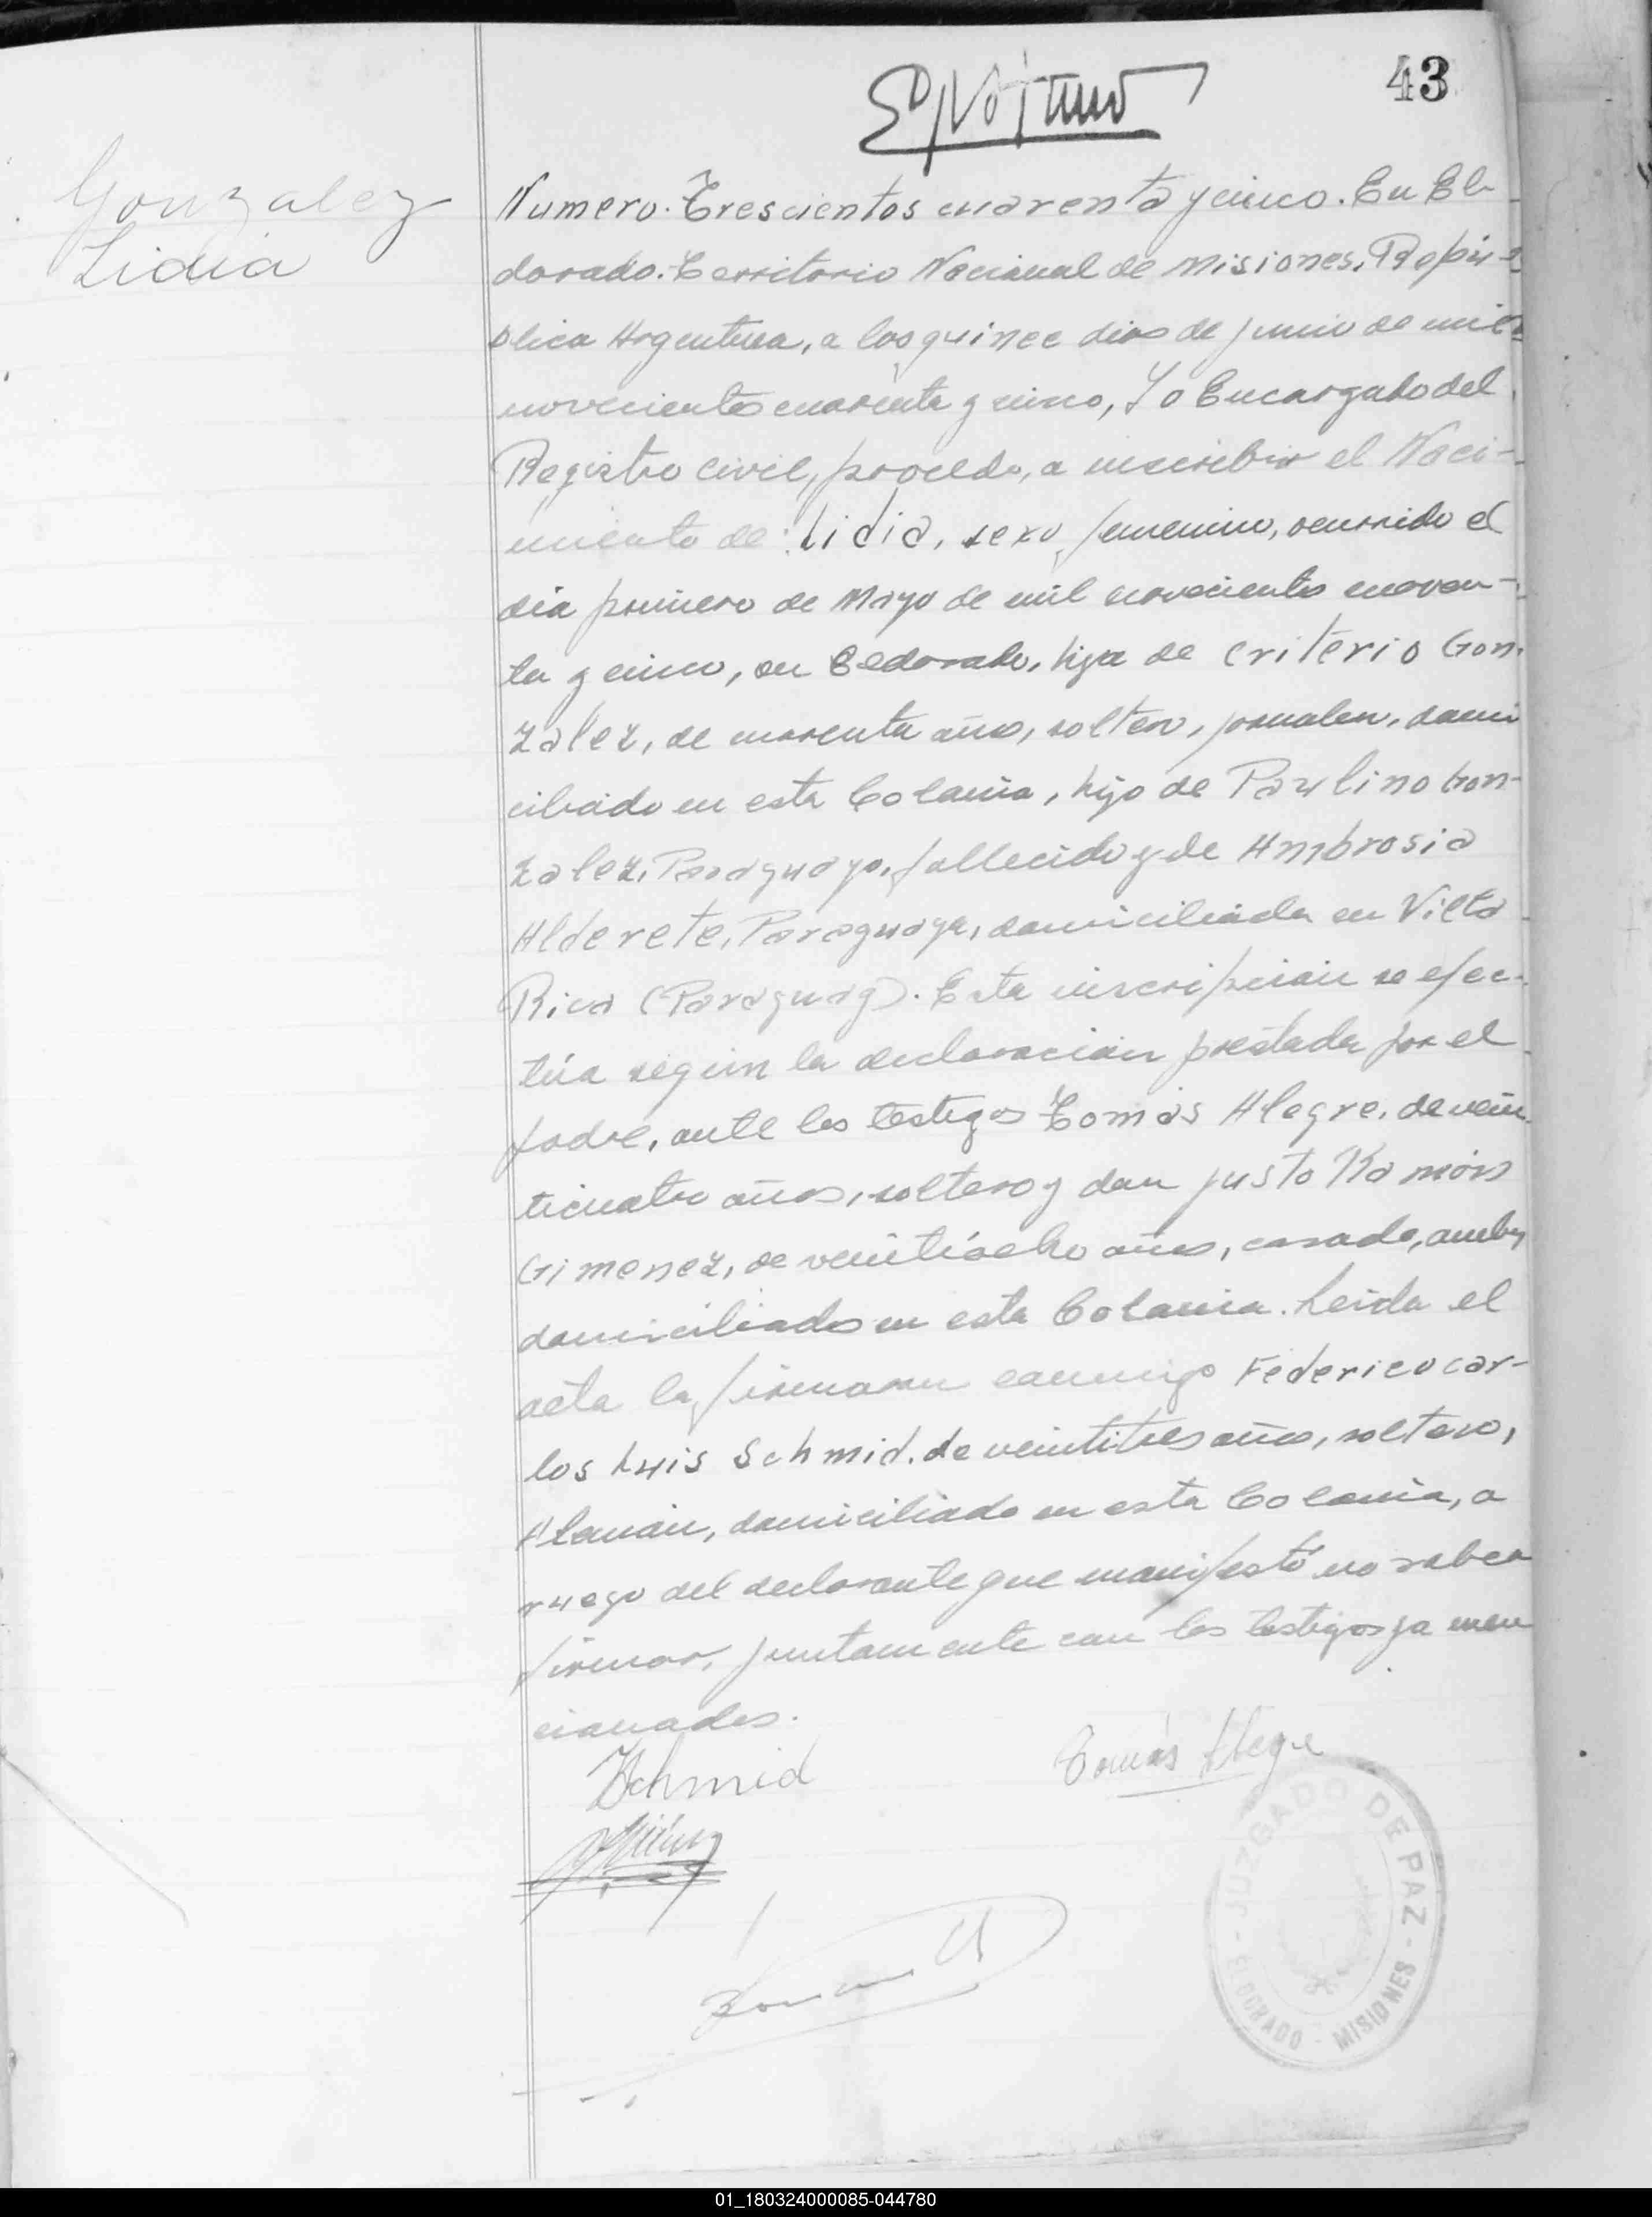 43
Gonzalez
Lidia
Numero. Trescientos cuarenta y cinco. En El-
dorado. Territorio Nacional de Misiones, Repú-
blica Argentina, a los quince dias de junio de mil
novecientos cuarenta y cinco, Yo Encargado del
Registro Civil, procedo, a inscribir el Naci-
miento de: Lidia, sexo femenino, ocurrido el
dia primero de Mayo de mil novecientos cuaren-
ta y cinco, en Eldorado, hija de Criterio Gon-
zalez, de cuarenta años, soltero, jornalero, domi
ciliado en esta Colonia, hijo de Paulino Gon-
zalez, Paraguayo, fallecido y de Ambrosia
Alderete, Paraguaya, domiciliada en Villa
Rica (Paraguay). Esta inscripción se efec-
túa según la declaración prestada por el
padre, ante los testigos Tomás Alegre, de vein
ticuatro años, soltero y don Justo Ramón
Gimenez, de veintiocho años, casado, ambos
domiciliados en esta Colonia. Leida el
acta la firmaron conmigo Federico Car-
los Luis Schmid, de veintitres años, soltero,
Alemán, domiciliado en esta Colonia, a
ruego del declarante que manifestó no saber
firmar, juntamente con los testigos ya men
cionados.
Schmid
Tomás Alegre
JUZGADO DE PAZ
- ELDORADO - MISIONES -
01_180324000085-044780